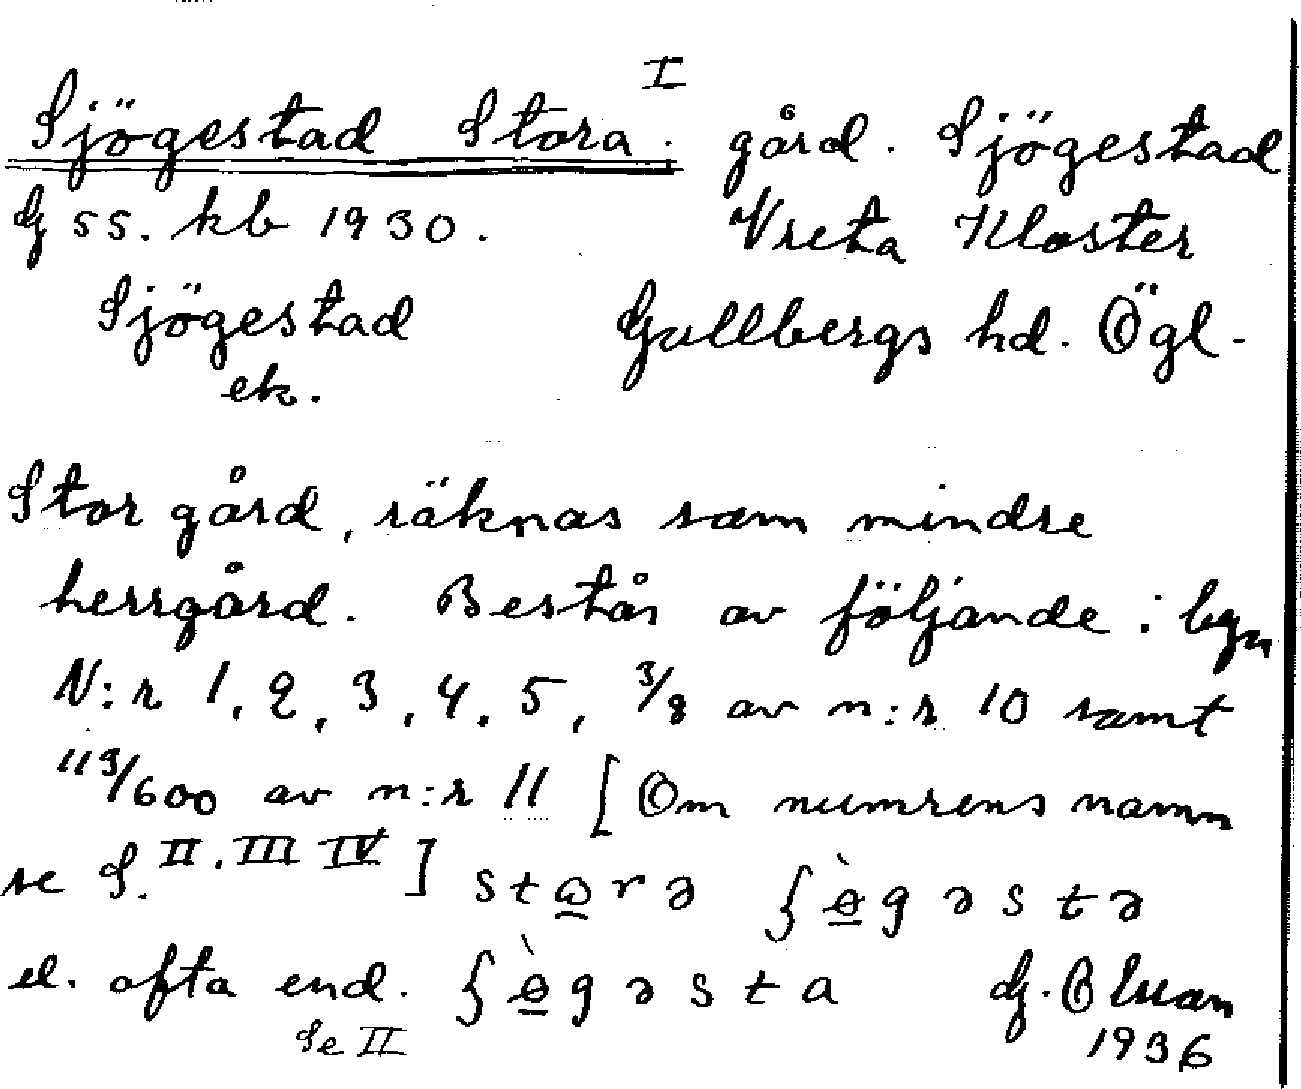 Sjögestad Stora I. gård. Sjögestad
G 55. kb 1930. Vreta Kloster
Sjögestad Gullbergs hd. Ögl.
ek.
Stor gård, räknas som mindre
herrgård. Består av följande:
N:r 1, 2, 3, 4, 5, 3/8 av n:r 10 samt
113/600 av n:r 11 [Om numrens namn
se S. II. III IV] stɷ̲rə ʃɵ̲̀gəstə
el. ofta end. ʃɵ̲̀gəsta
Se II 1936